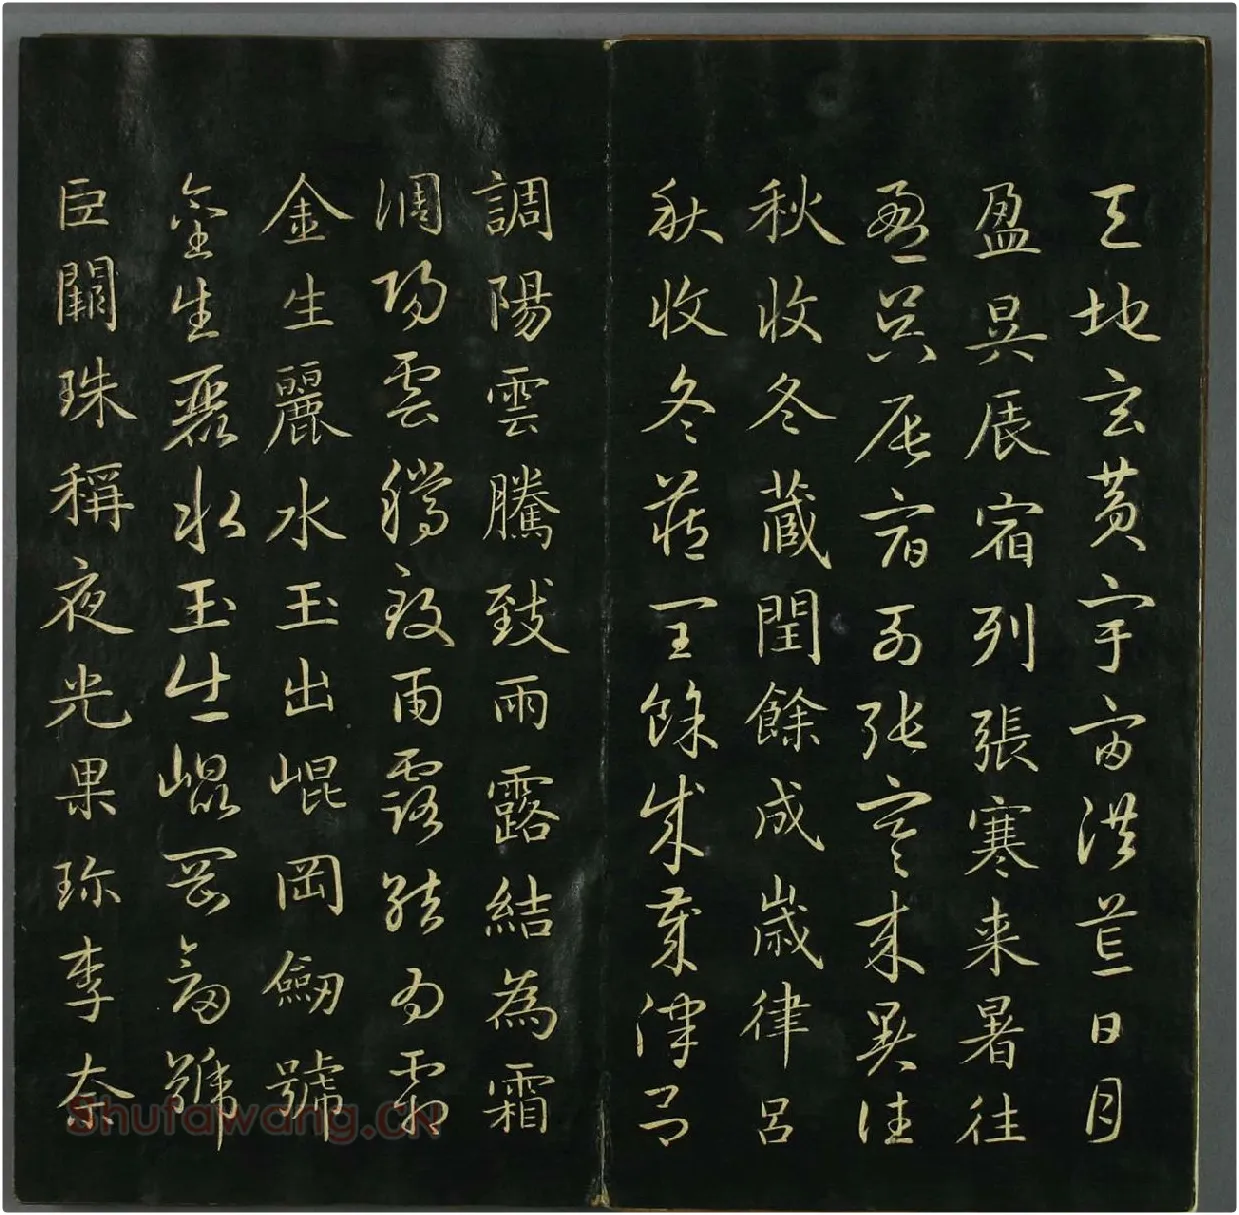 天地玄黄宇宙洪荒日月
盈昃辰宿列張寒来暑往
盈昃辰宿列张寒来暑往
秋收冬蔵閏餘成歳律呂
秋收冬蔵閏餘成歳律吕
調陽雲騰致雨露結為霜
調陽雲騰致雨露結为霜
金生麗水玉出崐岡劒號
金生麗水玉出崐岡劒號
巨闕珠稱夜光果珎李奈
Shufawang.CN